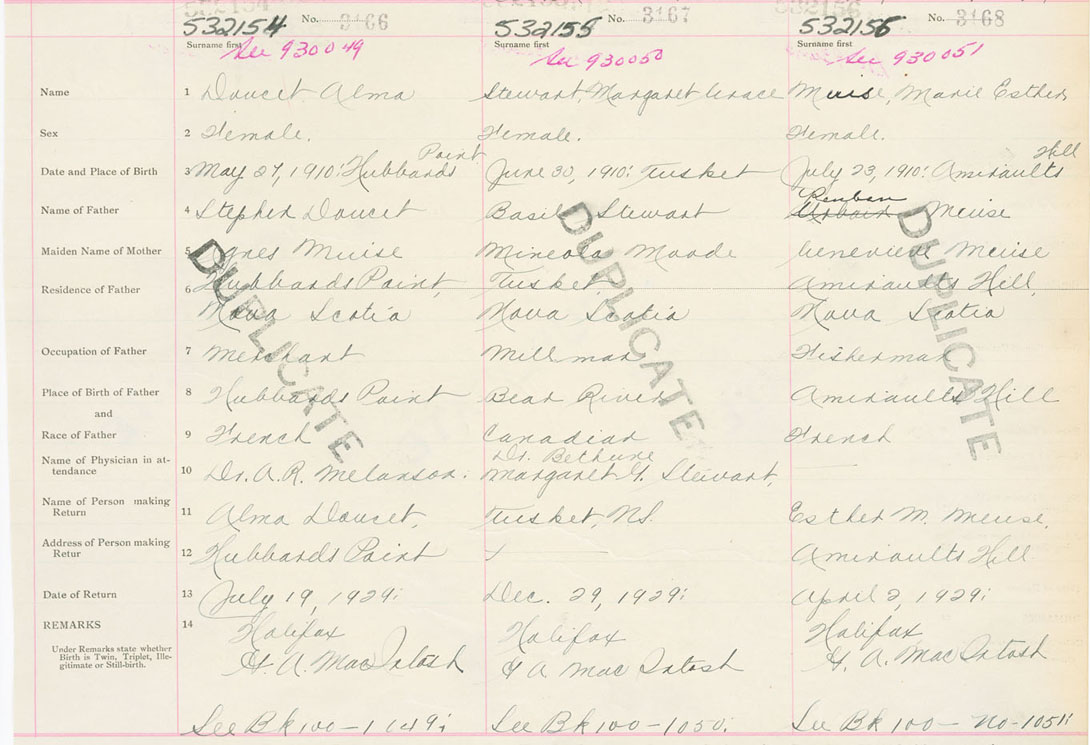 532154 No. 3166
532155 No. 3167
532156 No. 3168
Surname first
Surname first
Surname first
See 930049
See 930050
See 930051
Name 1 Doucet Alma
Stewart, Margaret Grace
Meuise, Marie Esther
Sex 2 Female.
Female.
Female.
Date and Place of Birth 3 May 27, 1910: Hubbards Point
June 30, 1910: Tusket
July 23, 1910: Amiraults Hill
Name of Father 4 Stephen Doucet
Basil Stewart
Reuben
Meuise
Maiden Name of Mother 5 Agnes Muise
Mineola Moode
Genevieve Meuise
Residence of Father 6 Hubbards Point,
Nova Scotia
Tusket,
Nova Scotia
Amiraults Hill,
Nova Scotia
Occupation of Father 7 Merchant
Millman
Fisherman
Place of Birth of Father 8 Hubbards Point
Bear River
Amiraults Hill
and
Race of Father 9 French
Canadian
French
Name of Physician in at-
tendance 10 Dr. A. R. Melanson.
Dr. Bethune
Margaret G. Stewart,
Name of Person making
Return 11 Alma Doucet,
Tusket, N.S.
Esther M. Meuse,
Address of Person making
Retur 12 Hubbards Point
Amiraults Hill.
Date of Return 13 July 19, 1929:
Dec. 29, 1929:
April 2, 1929:
REMARKS 14 Halifax
H. A. MacIntosh
Halifax
H A MacIntosh
Halifax
H. A. MacIntosh
Under Remarks state whether
Birth is Twin, Triplet, Ille-
gitimate or Still-birth.
See Bk 100 - 1049:
See Bk 100 - 1050:
See Bk 100 - No - 1051:
DUPLICATE
DUPLICATE
DUPLICATE